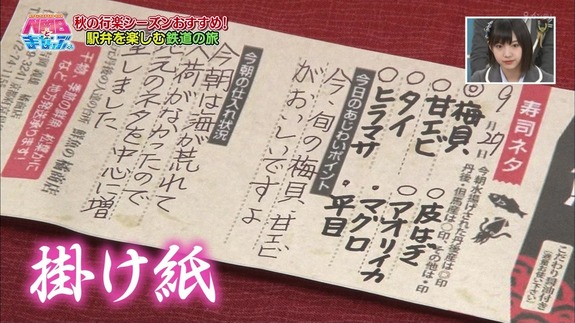 秋の行楽シーズンおすすめ!
駅弁を楽しむ鉄道の旅
寿司ネタ
9月27日
今朝水揚げされた丹後産は◎印
丹後・但馬産は○印 その他は・印
◎梅貝
○甘エビ ○皮はぎ
○タイ ○アオリイカ
○ヒラマサ ・マグロ
・平目
今日のあじわいポイント
今、旬の梅貝、甘エビ
がおいしいですよ
今朝の仕入れ状況
今朝は海が荒れて
入荷がなかったので
こえのネタを中心に増
をしました
こだわり醤油付き
掛け紙